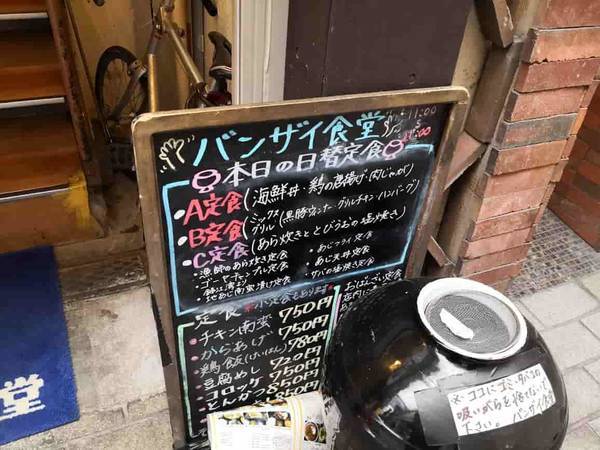 バンザイ食堂
11:00
本日の日替定食
A定食(海鮮丼・鶏の唐揚げ・肉じゃが)
B定食(ミックスグリル(黒豚ウインナー・グリルチキン・ハンバーグ)
C定食(あら炊きととびうおの塩焼き)
・漁師のあら炊き定食
・ゴーヤーチャンプル定食
・地あじ南蛮漬け定食
・あじフライ定食
・あじ天丼定食
・サバの塩焼き定食
定食
小定食もあります
・チキン南蛮 750円
・からあげ 750円
・鶏飯(けいはん) 780円
・豆腐めし 720円
・コロッケ 750円
・とんかつ 850円
おばんざい定食
店内に
堂
※ココにゴミ・タバコの
吸いがらを捨てないで
下さい。バンザイ食堂